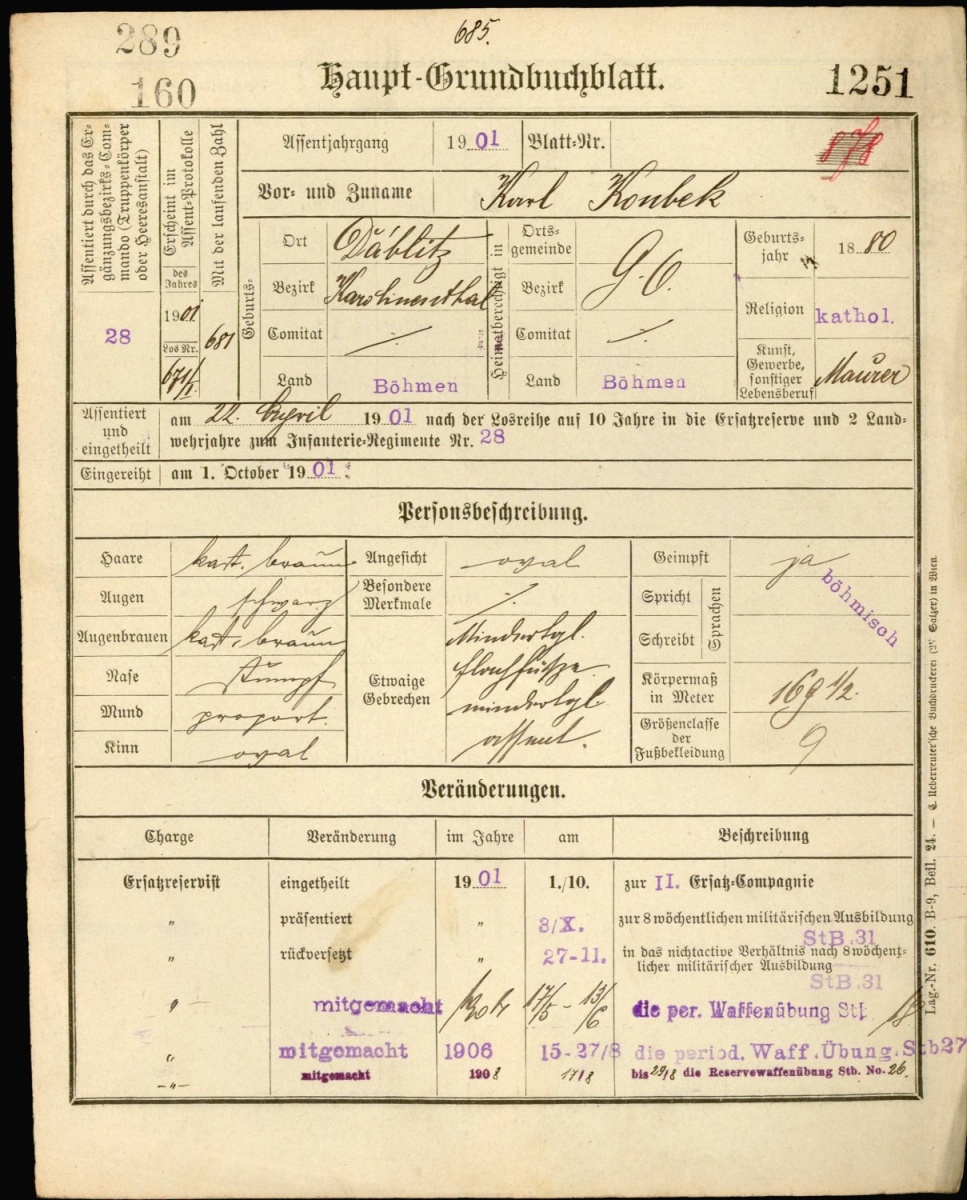 289
685.
160
Haupt-Grundbuchblatt.
1251
Assentiert durch das Er-
gänzungsbezirks-Com-
mando (Truppenkörper
oder Heeresanstalt)
28
Erscheint im
Assent-Protokolle
des
Jahres
1901
Los Nr.
Mit der laufenden Zahl
681
Assentjahrgang 1901 Blatt-Nr.
Vor- und Zuname Karl Koubek
Geburts-
Ort Ďáblitz
Bezirk Karolinenthal
Comitat ./.
Land Böhmen
Heimatberechtigt in
Orts-
gemeinde
Bezirk G. O.
Comitat ./.
Land Böhmen
Geburts-
jahr 1880
Religion kathol.
Kunst,
Gewerbe,
sonstiger
Lebensberuf Maurer
Assentiert
und
eingetheilt
am 22. April 1901 nach der Losreihe auf 10 Jahre in die Ersatzreserve und 2 Land-
wehrjahre zum Infanterie-Regimente Nr. 28
Eingereiht am 1. October 1901.
Personsbeschreibung.
Haare kast. braun
Augen schwarz
Augenbrauen kast. braun
Nase stumpf
Mund proport.
Kinn oval
Angesicht oval
Besondere
Merkmale ./.
Etwaige
Gebrechen
Mindertgl.
Plattfüße
mindertgl.
assent.
Geimpft ja
Spricht
Schreibt
Sprachen
böhmisch
Körpermaß
in Meter 169 1/2.
Größenclasse
der
Fußbekleidung 9
Veränderungen.
Charge Veränderung im Jahre am Beschreibung
Ersatzreservist eingetheilt 1901 1./10. zur II. Ersatz-Compagnie
" präsentiert " 3/X. zur 8 wöchentlichen militärischen Ausbildung
StB.31
" rückversetzt " 27-11. in das nichtactive Verhältnis nach 8 wöchent-
licher militärischer Ausbildung
StB.31
" mitgemacht 17/5 - 13/6 die per. Waffenübung Stb
" mitgemacht 1906 15-27/8 die period. Waff.Übung.Stb27
-"- mitgemacht 1908 17/8 bis 29/8 die Reservewaffenübung Stb. No. 26.
Lag.-Nr. 610. B-9, Beil. 24. — C. Ueberreuter'sche Buchdruckerei (M. Salzer) in Wien.